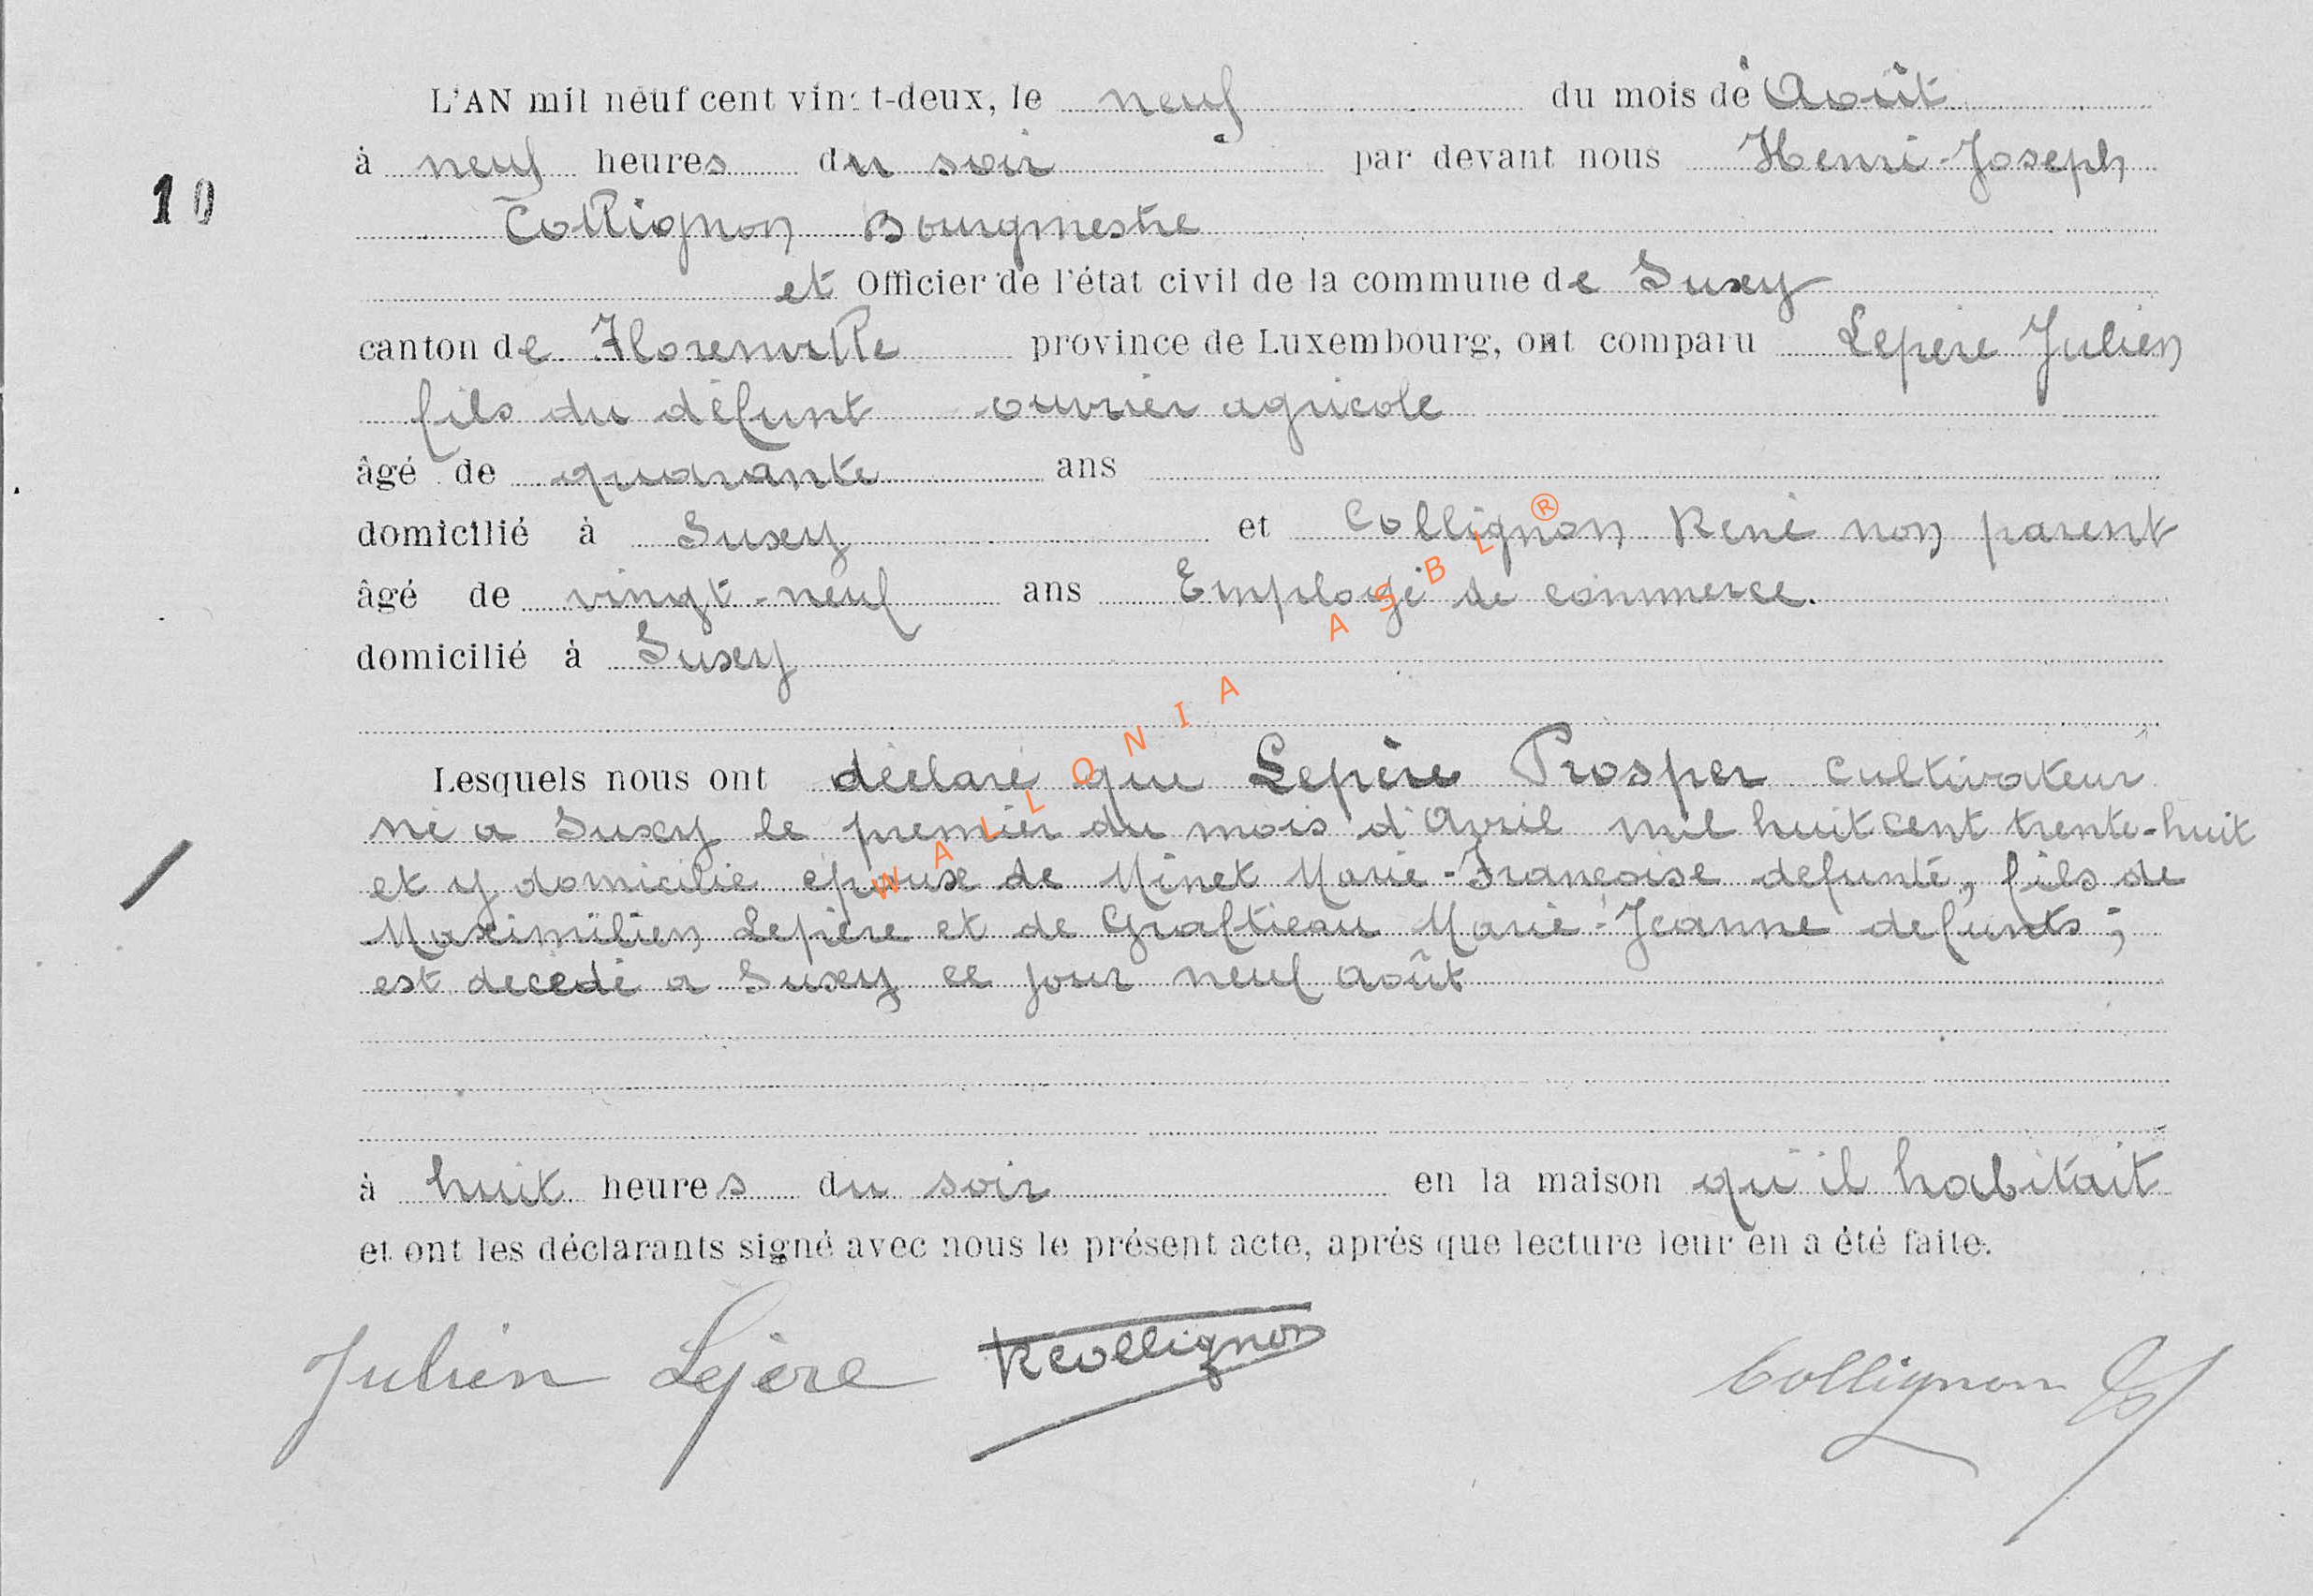 L'AN mil neuf cent vingt-deux, le neuf du mois de Août
à neuf heures du soir par devant nous Henri-Joseph
10
Collignon Bourgmestre
et Officier de l'état civil de la commune de Suxy
canton de Florenville province de Luxembourg, ont comparu Lepère Julien
fils du défunt ouvrier agricole
âgé de quarante ans
domicilié à Suxy et Collignon René non parent
âgé de vingt-neuf ans Employé de commerce.
domicilié à Suxy
Lesquels nous ont déclaré que Lepère Prosper cultivateur
né a Suxy le premier du mois d'Avril mil huit cent trente-huit
et y domicilié époux de Minet Marie-Françoise defunte, fils de
Maximilien Lepère et de Graftieau Marie-Jeanne defunts;
est decedé a Suxy ce jour neuf août
à huit heures du soir en la maison qu'il habitait
et ont les déclarants signé avec nous le présent acte, après que lecture leur en a été faite.
Julien Lepère RCollignon Collignon
WALLONIA ASBL ®